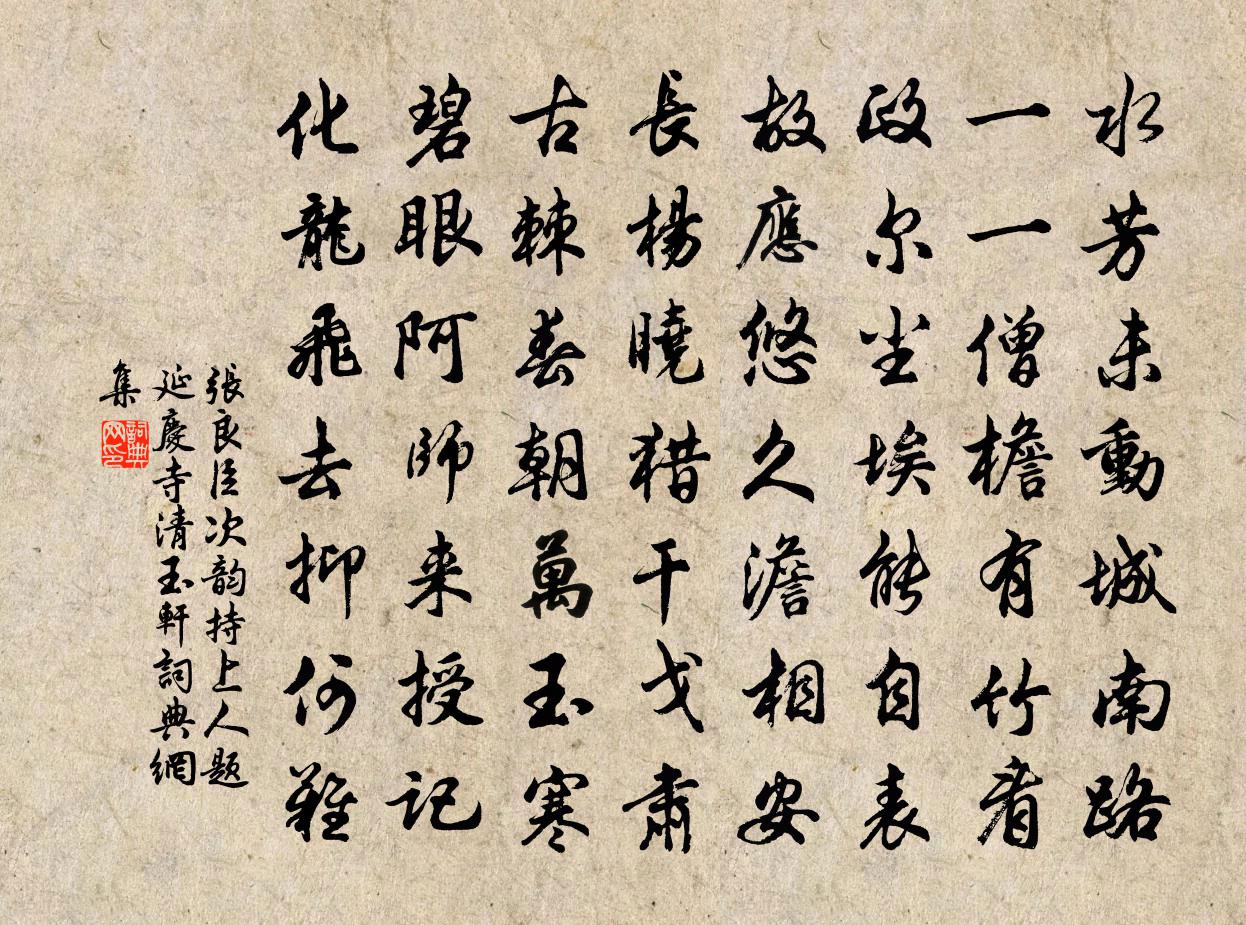 水芳未動城南路
一一僧檐有竹看
政尔尘埃能自表
故應悠久澹相安
長楊曉猎干戈肅
古棘春朝萬玉寒
碧眼阿師来授記
化龍飛去抑何難
張良臣次韵持上人題
延慶寺清玉軒詞典網
集
詞典网印